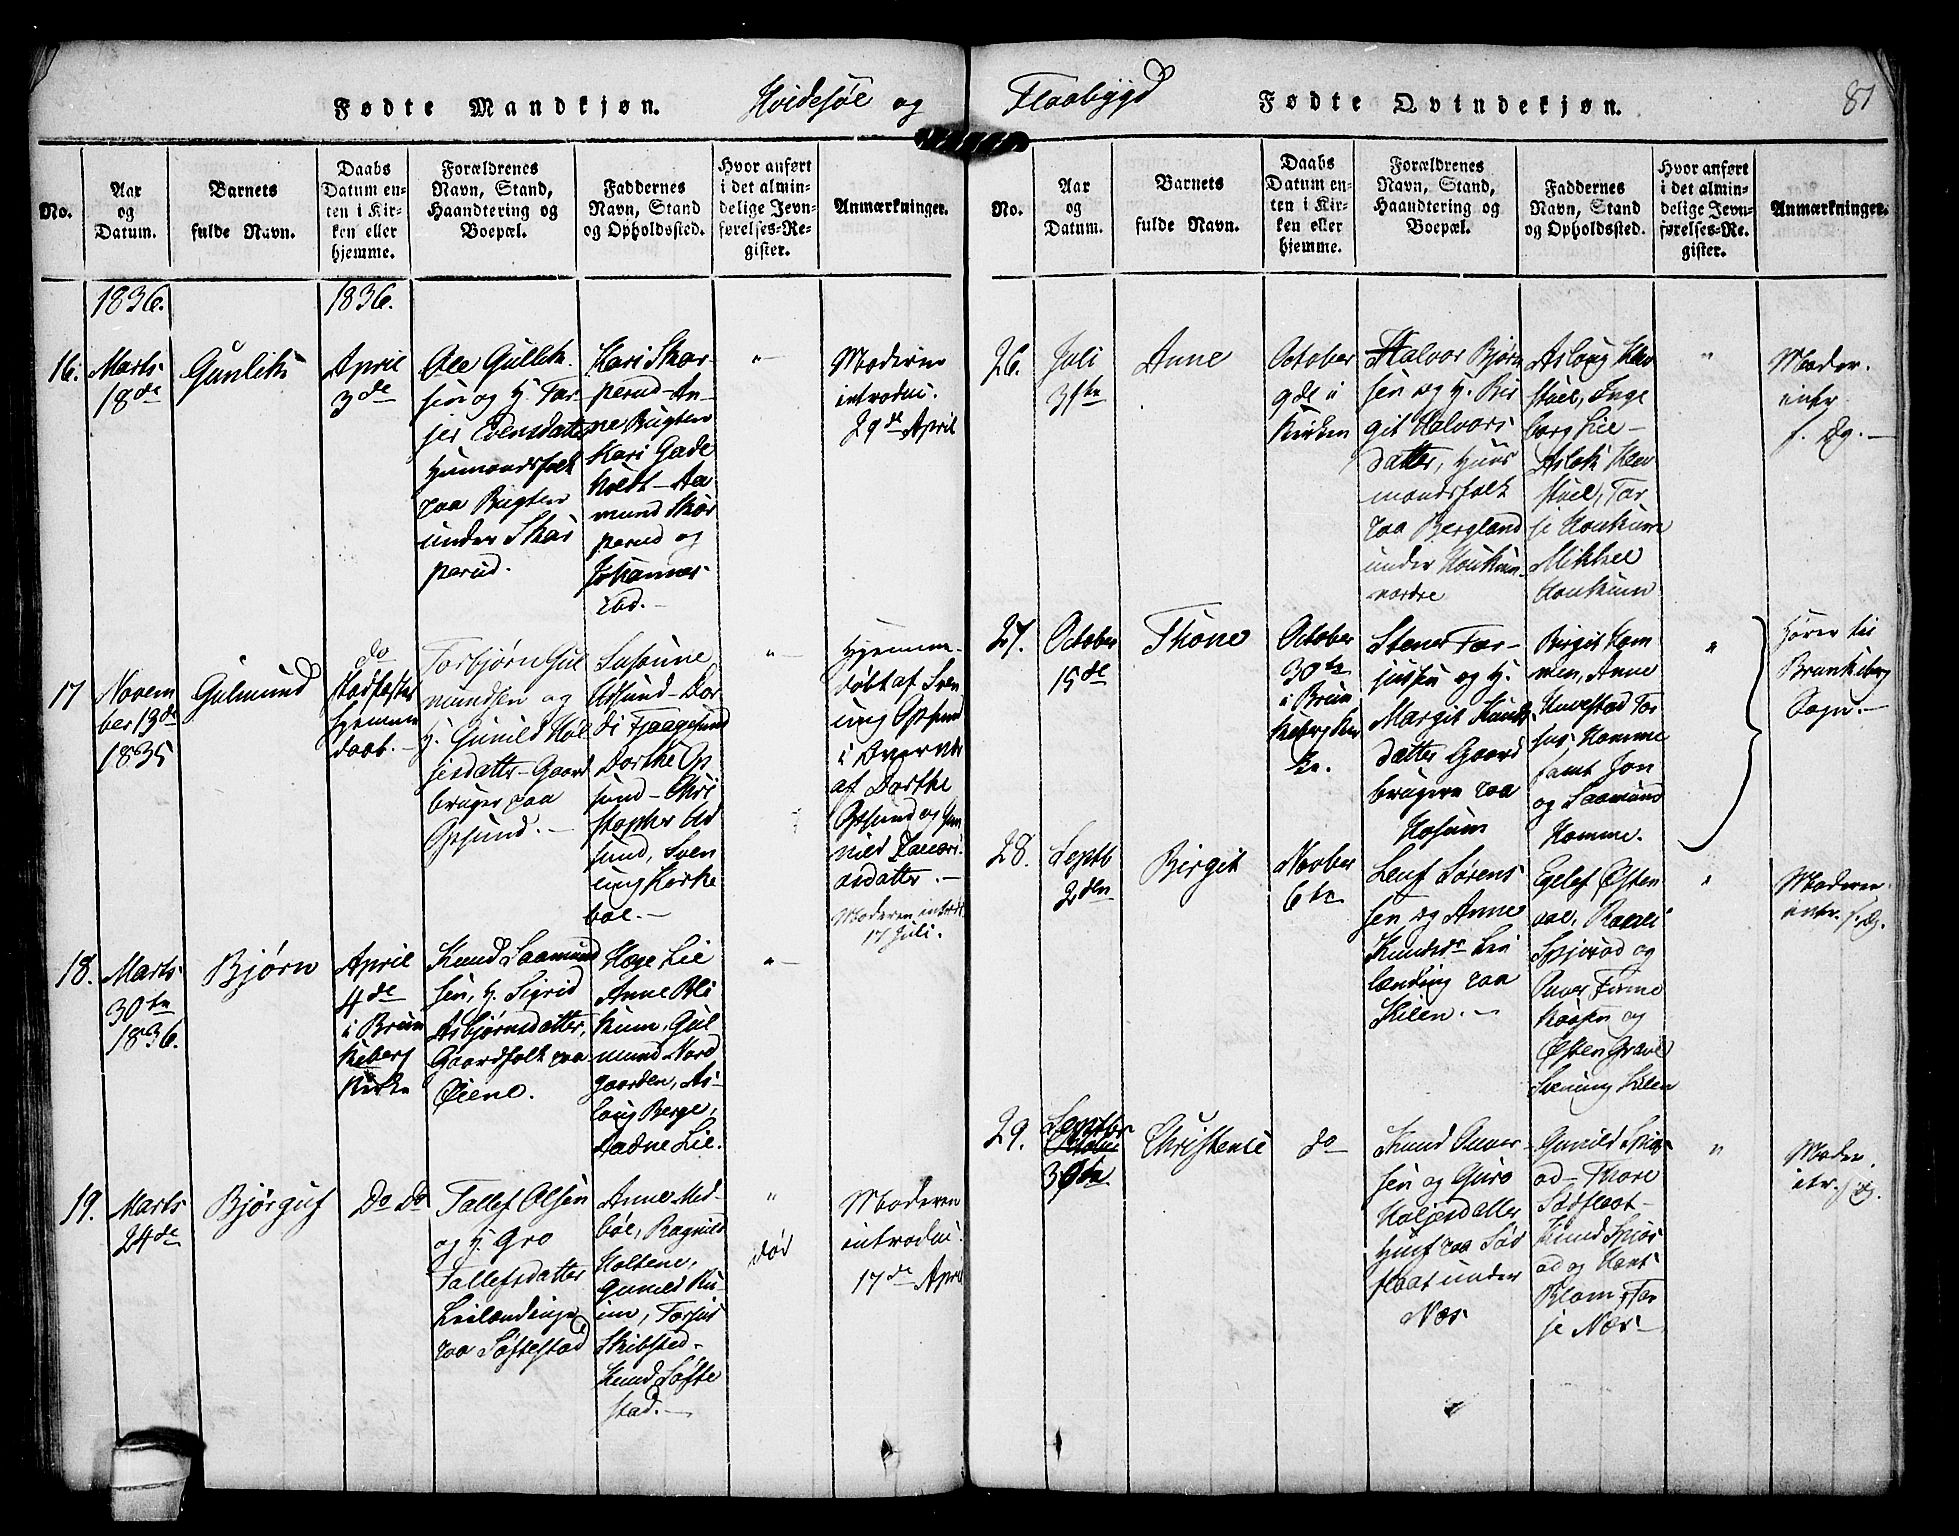 Fødte Mandkjøn.
Hvidesøe og
Flaabygd
Fødte Qvindekjøn.
81
No.
Aar
og
Datum.
Barnets
fulde Navn.
Daabs
Datum en-
ten i Kir-
ken eller
hjemme.
Forældrenes
Navn, Stand,
Haandtering og
Boepæl.
Faddernes
Navn, Stand
og Opholdssted.
Hvor anført
i det almin-
delige Jevn-
førelses-Re-
gister.
Anmærkninger.
1836.
1836.
16.
Marts
18de
Gunlik
April
3de
Ole Gullik
sen og H. Tar-
jer Evensdatter
Huusmandsfolk
paa Bugten
under Skar
perud.
Kari Skar-
perud - An-
ne Bugten
Kari Gade
holdt - Aa
mund Skar
perud og
Johannes
ibd. -
"
Moderen
introdu.
29de April
17
Novem
ber 19de
1835
Gulmund
do
Stadfæstet
hjemme
daab. -
Torbjørn Gul
mundsen og
H. Gunild Høl
jesdatter - Gaard
bruger paa
Opsund. -
Susanne
Udsund - Dor-
di Fjaagesund
Dorthe Op
sund - Chri
stopher Ud
sund, Sven
ung Kirke
bøe. -
"
Hjemme-
døbt af Sven
ung Opsund
i Overvær
af Dorthe
Opsund og Gu
nild Zacari-
asdatter. -
Moderen introd.
17 Juli.
18.
Marts
30te
1836.
Bjørn
April
4de
i Brun
keberg
Kirke
Knud Saamund
sen, H. Sigrid
Asbjørnsdatter,
Gaardfolk paa
Øiene.
Hæge Lie
Anne Bli
kum, Gul
mund Nord
gaarden, As-
loug Berge,
Aadne Lie.
"
19.
Marts
24de
Bjørguf
Do Do
Tallef Olsen
og H. Gro
Tallefsdatter
Leilændinge
paa Søftestad
Anne Mid-
bøe, Ragnild
Holtene,
Gunild Ru-
im, Torjus
Skibsted -
Knud Søfte
stad. -
"
død
Moderen
introdu.
17de April
No.
Aar
og
Datum.
Barnets
fulde Navn.
Daabs
Datum en-
ten i Kir-
ken eller
hjemme.
Forældrenes
Navn, Stand,
Haandtering og
Boepæl.
Faddernes
Navn, Stand
og Opholdssted.
Hvor anført
i det almin-
delige Jevn-
førelses-Re-
gister.
Anmærkninger.
26.
Juli
31te
Anne
October
9de i
Kirken
Halvor Bjørn
sen og H. Bir
git Halvors
datter, Huus
mandsfolk
paa Bergland
under Haukum
nordre
Asloug Klev
stuel, Inge
borg Lie -
Aslak Klev
stuel, Tar
je Haukum
Mikkel
Haukum
"
Moder.
intr.
s. Dg. -
27.
October
15de
Thone
October
30te
i Brun
keberg Kir
ke.
Stener Tar-
jusen og H.
Margit Knuds
datter Gaard
brugere paa
Kosum
Birgit Hom
men, Anne
Kuvestad Tor
jus Homme
samt Jon
og Saamund
Homme.
"
hører til
Brunkeberg
Sogn. -
28.
Septb
2den
Birgit
Novber
6te
Leuf Sørens
sen og Anne
Knudsdr Lei
lænding paa
Kilen. -
Eglef Østen
aae, Ragnil
Spjosod og
Anver Finne
Kaasen og
Østen Gravli
Svenung Kilen
"
Moderen
intr. s. Dg.
29.
Septbr
30te
Christence
do
Knud Anver
sen og Guro
Høljesdatter
Husf paa Sød
flaat under
Næs
Gunild Spios
od - Thore
Sødflaat -
Knud Spios
od og Hans
Blom, Tar
je Næs -
"
Moder.
intr. s. Dg.